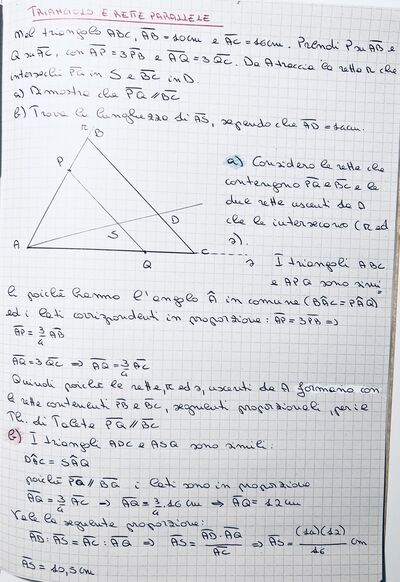 TRIANGOLO E RETTE PARALLELE
Nel triangolo ABC, AB = 20cm e AC = 16cm. Prendi P su AB e
Q su AC, con AP = 3PB e AQ = 3QC. Da A traccia la retta r che
intersechi PQ in S e BC in D.
a) Dimostra che PQ // BC
b) Trova la lunghezza di AS, sapendo che AD = 14cm.
r B
P
D
S
A
Q
C
s
a) Considero le rette che
contengono PQ e BC e le
due rette uscenti da
che le intersecano (r ed
s).
I triangoli ABC
e APQ sono simi
li poiché hanno l'angolo Â in comune (BÂC = PÂQ)
ed i lati corrispondenti in proporzione: AP = 3PB =>
AP = 3/4 AB
AQ = 3QC => AQ = 3/4 AC
Quindi poiché le rette, r ed s, uscenti da A formano con
le rette contenenti e BC, segmenti proporzionali, per il
Th. di Talete PQ // BC
b) I triangoli ADC e ASQ sono simili:
DÂC = SÂQ
poiché // i lati sono in proporzione
AQ = 3/4 AC => AQ = 3/4 · 16cm => AQ = 12cm
Vale la seguente proporzione:
AD : AS = AC : AQ => AS = AD · AQ / AC => AS = (14)(12) / 16 cm
AS = 10,5cm